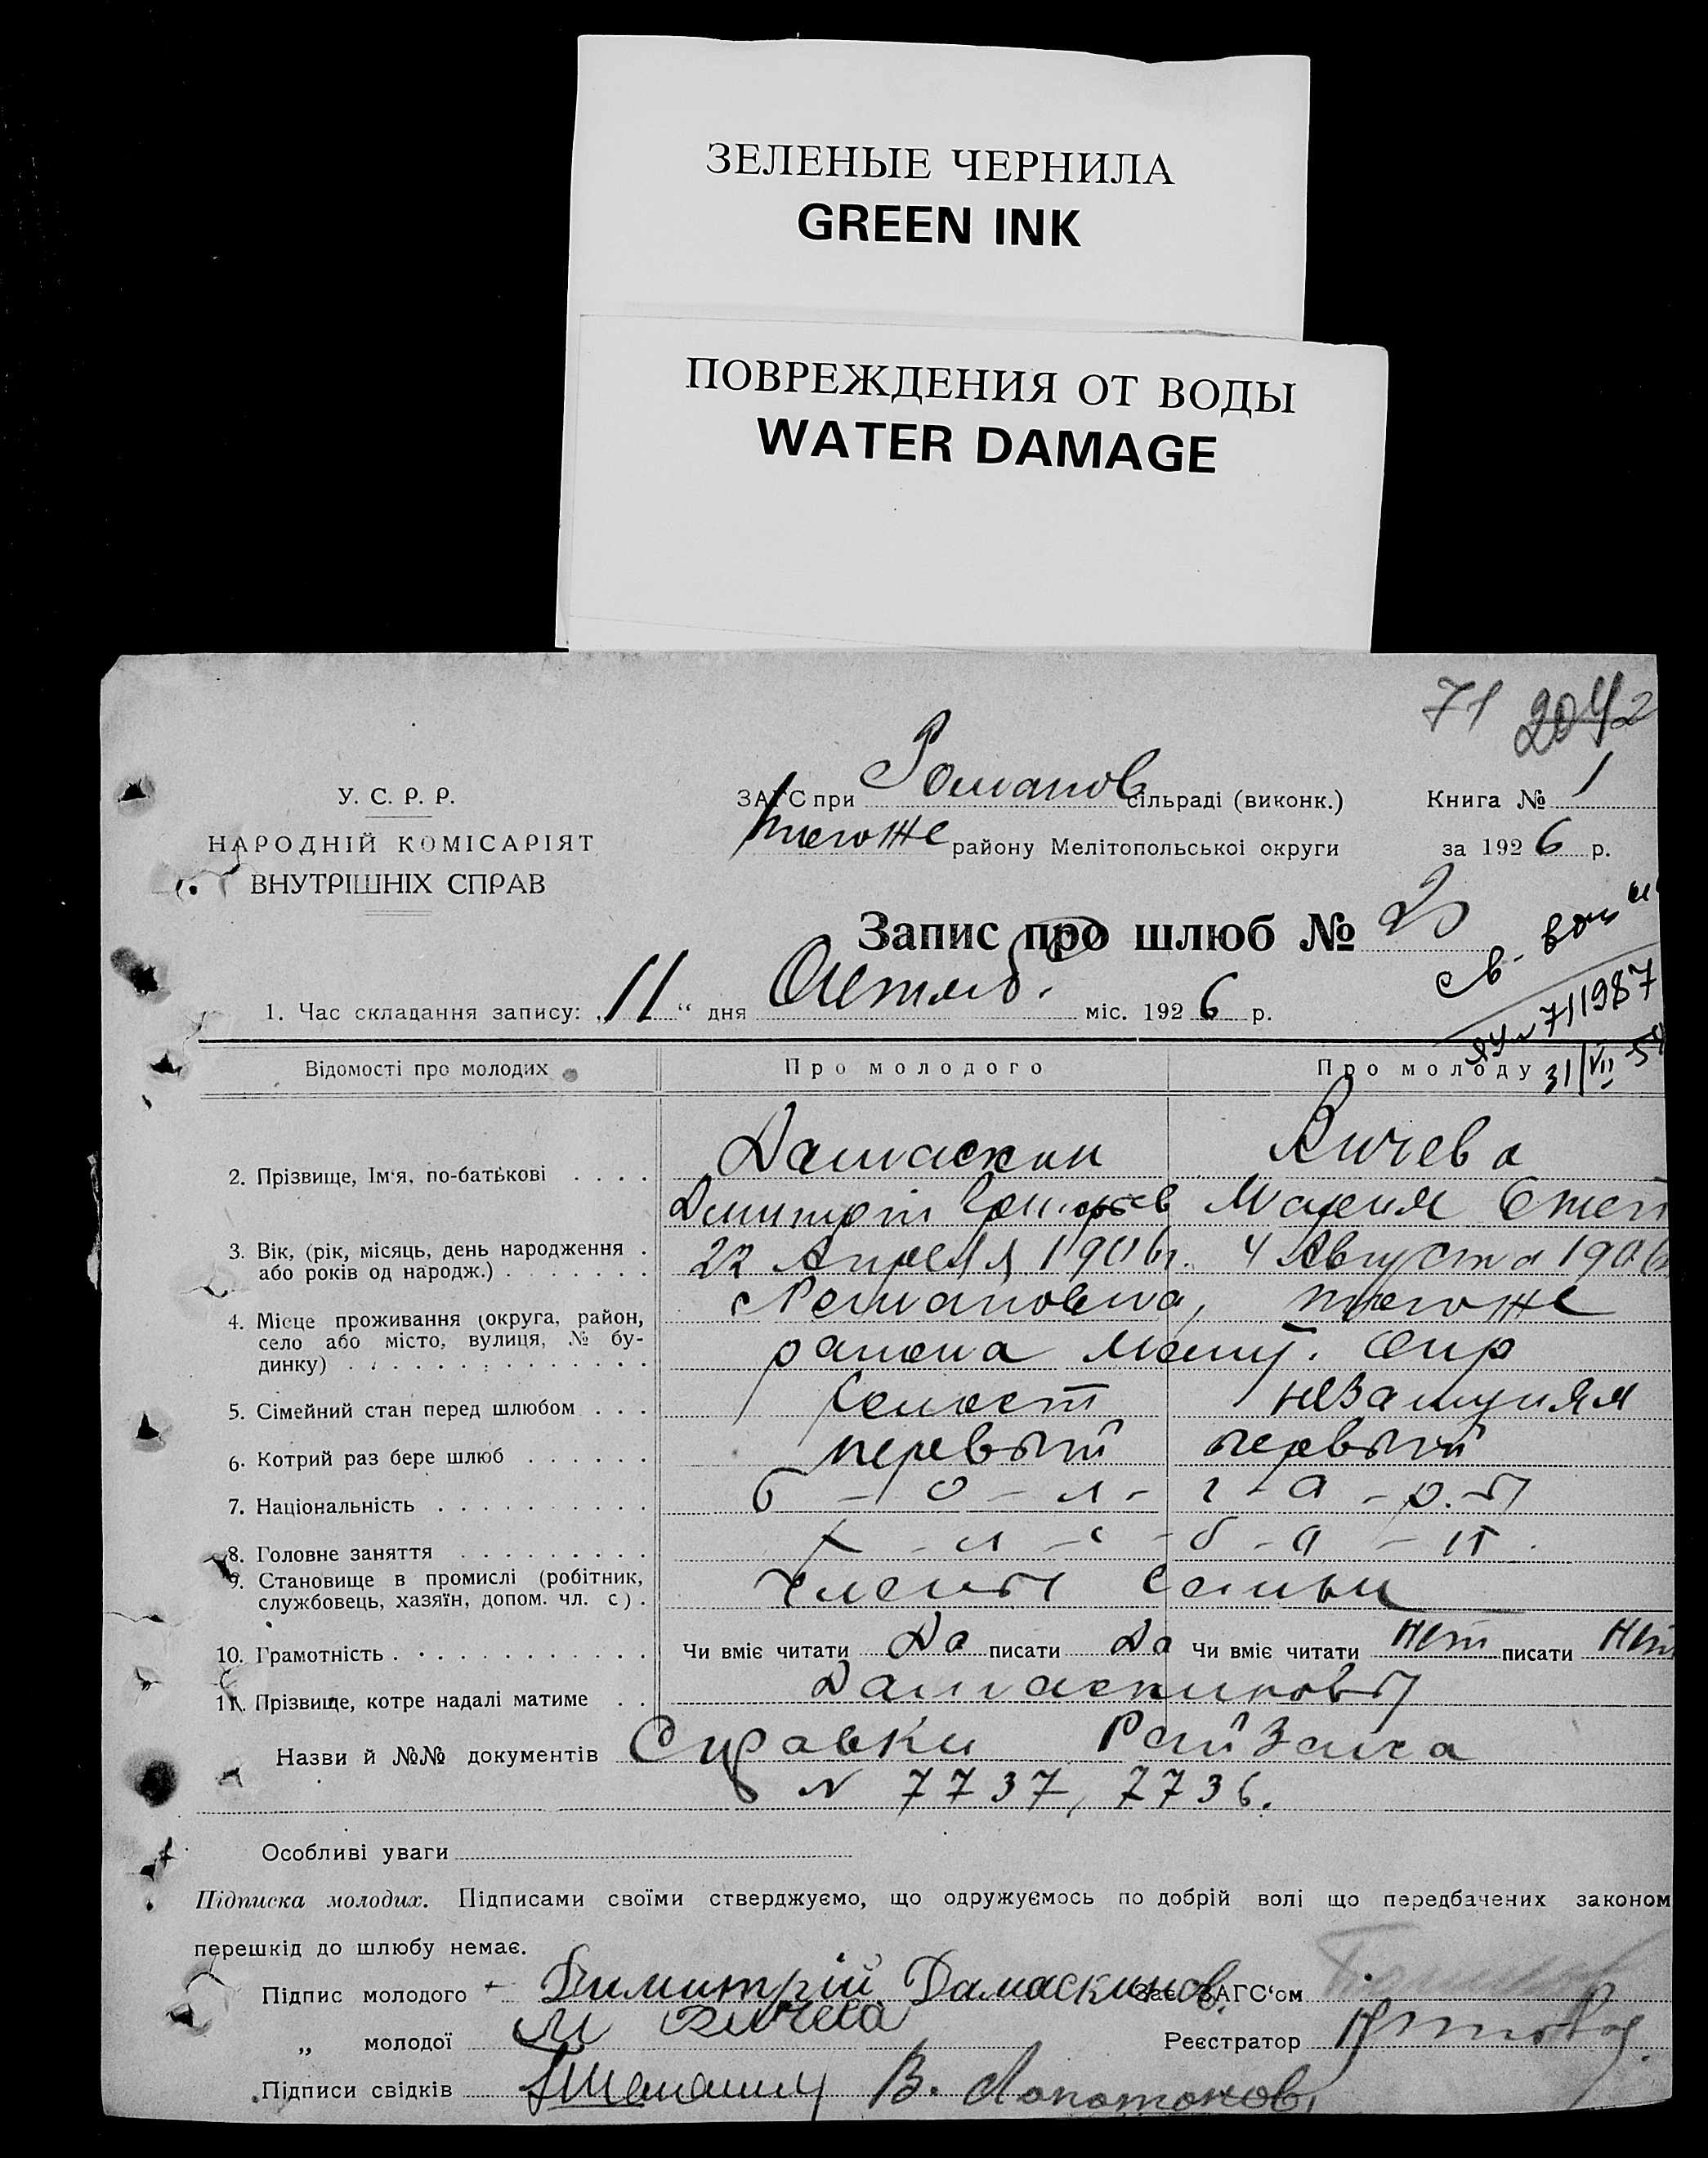 ЗЕЛЕНЫЕ ЧЕРНИЛА
GREEN INK
ПОВРЕЖДЕНИЯ ОТ ВОДЫ
WATER DAMAGE
71 2042
У. С. Р. Р.
НАРОДНІЙ КОМІСАРІЯТ
ВНУТРІШНІХ СПРАВ
ЗАГС при Романов сільраді (виконк.)
тогоже району Мелітопольської округи
Книга № 1
за 1926 р.
Запис про шлюб №
св.
711987
31/VII 54
1. Час складання запису: „11“ дня Октяб. міс. 1926 р.
Відомості про молодих Про молодого Про молоду
2. Прізвище, Ім'я, по-батькові . . . . Дамаскин Кичева
Дмитрий Мария Степ
3. Вік, (рік, місяць, день народження . або років од народж.) . . . . . . . 22 Апреля 1906г. 4 Августа 1906
4. Місце проживання (округа, район, село або місто, вулиця, № будинку) . . . . . . . . . . . . . с Романовка, тогоже
района Мелит. Окр
5. Сімейний стан перед шлюбом . . . Холост незамужняя
6. Котрий раз бере шлюб . . . . . . первый первый
7. Національність . . . . . . . . . . б - о - л - г - а - р - ы
8. Головне заняття . . . . . . . . . х - л - е - б - п
9. Становище в промислі (робітник, службовець, хазяїн, допом. чл. с) . Члены семьи
10. Грамотність . . . . . . . . . . . Чи вміє читати Да писати Да Чи вміє читати Нет писати Нет
11. Прізвище, котре надалі матиме . . Дамаскиновы
Назви й №№ документів Справки РайЗагса
N 7737, 7736.
Особливі уваги
Підписка молодих. Підписами своїми стверджуємо, що одружуємось по добрій волі що передбачених законом
перешкід до шлюбу немає.
Підпис молодого Димитрій Дамаскинов. Зав. ЗАГС'ом
„ молодої М Кичева Реєстратор
Підписи свідків В.